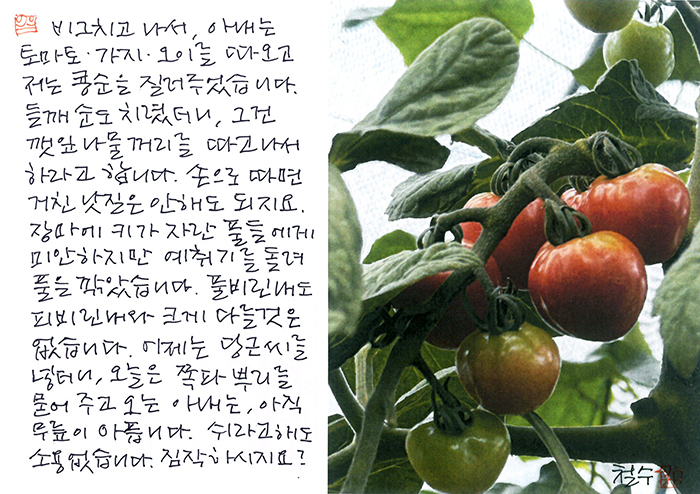 비그치고 나서, 아내는
토마토·가지·오이를 따오고
저는 콩순을 질러주었습니다.
들깨 순도 치렸더니, 그건
깻잎나물꺼리를 따고나서
하라고 합니다. 손으로 따면
거친 낫질은 안해도 되지요.
장마에 키가 자란 풀들에게
미안하지만 예취기를 돌려
풀을 깎았습니다. 풀비린내도
피비린내와 크게 다를것은
없습니다. 어제는 당근씨를
넣더니, 오늘은 쪽파 뿌리를
묻어 주고 오는 아내는, 아직
무릎이 아픕니다. 쉬라고해도
소용없습니다. 짐작하시지요?
철수